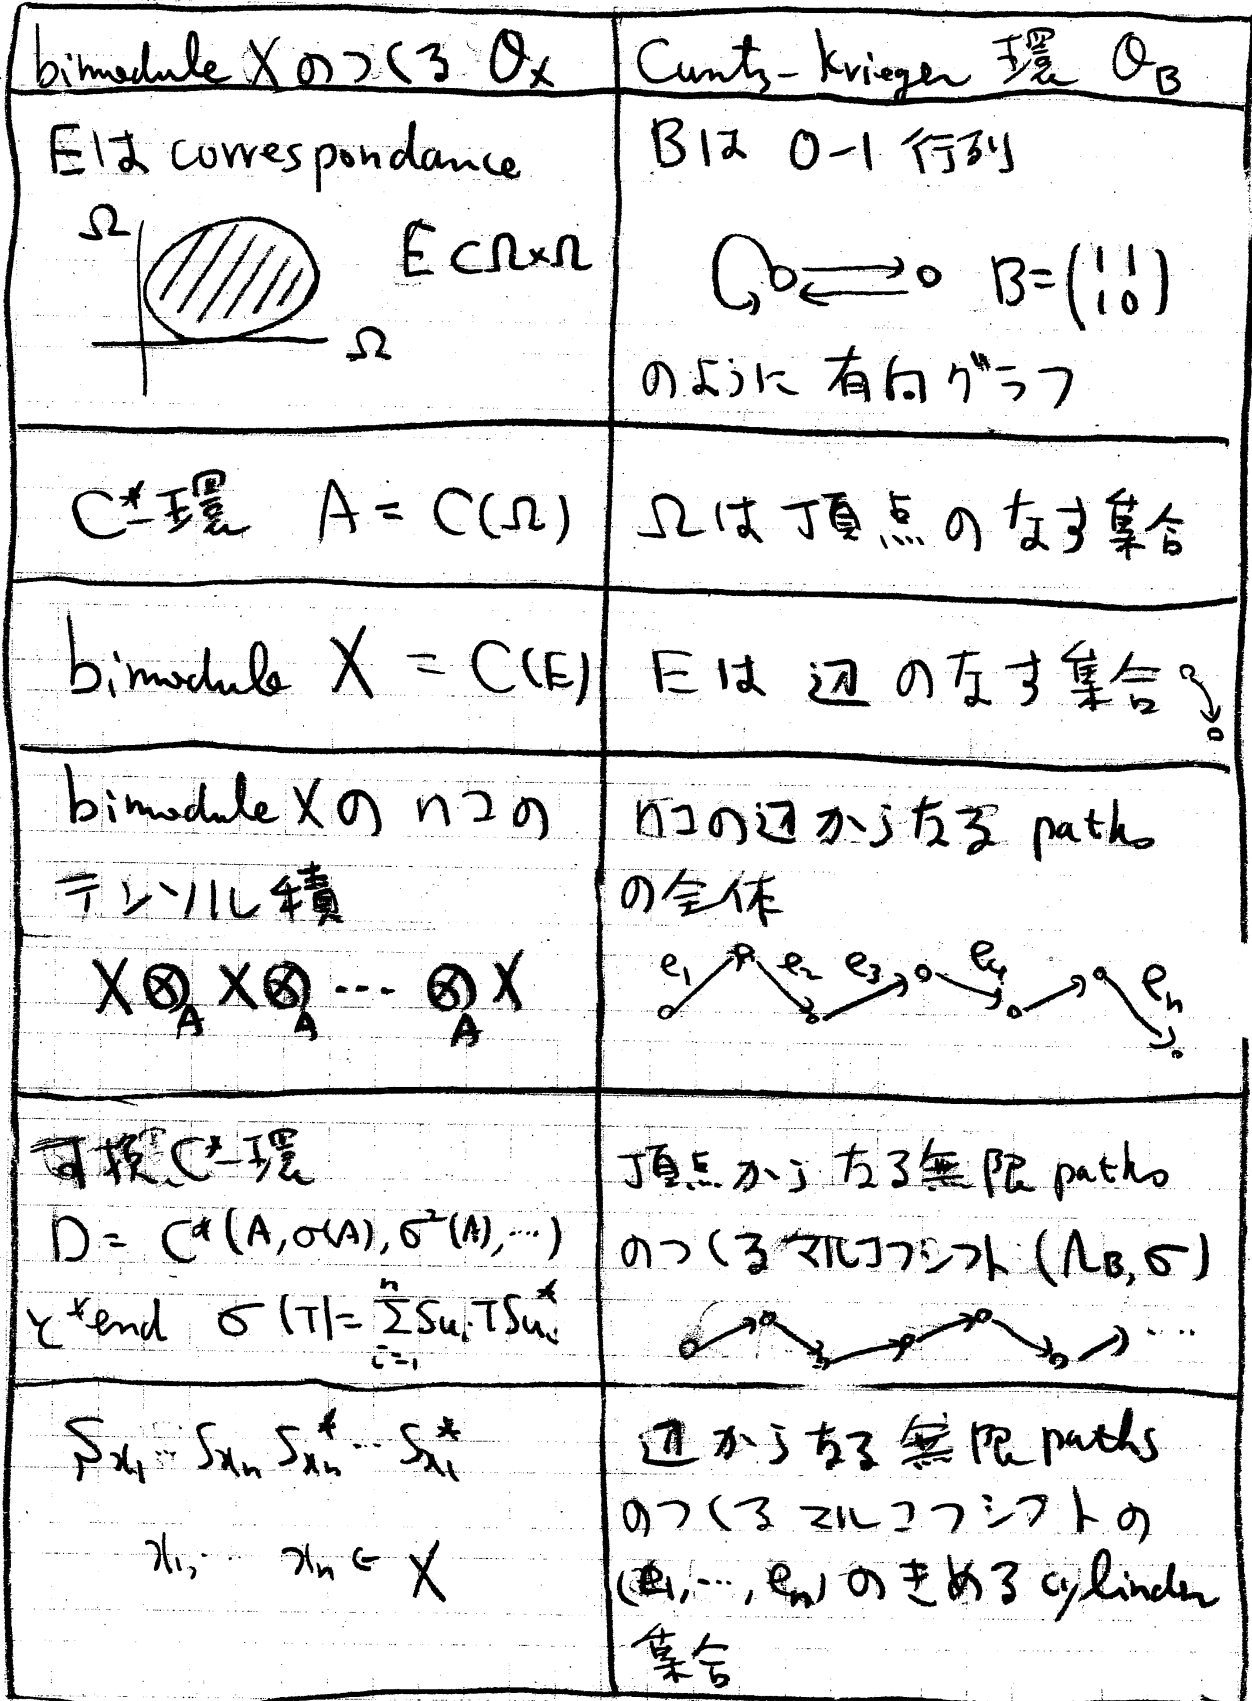 bimodule X のつくる O_X
Cuntz-Krieger 環 O_B
Eは correspondance
Ω
E⊂Ω×Ω
Ω
Bは 0-1 行列
B=(1 1
1 0)
のように 有向グラフ
C*-環 A = C(Ω)
Ωは頂点のなす集合
bimodule X = C(E)
Eは 辺 のなす集合
bimodule X の nコの
テンソル積
X⊗_A X⊗_A ... ⊗_A X
nコの辺からなる paths
の全体
e_1 e_2 e_3 e_4 e_n
可換C*-環
D = C*(A, σ(A), σ^2(A), ...)
*end σ(T)=∑_{i=1}^{n} S_{u_i} T S_{u_i}^*
頂点からなる無限 paths
のつくるマルコフシフト (Λ_B, σ)
...
S_{x_1} ... S_{x_n} S_{x_n}^* ... S_{x_1}^*
x_1, ... x_n ∈ X
辺からなる無限 paths
のつくるマルコフシフトの
(e_1, ..., e_n) のきめる cylinder
集合